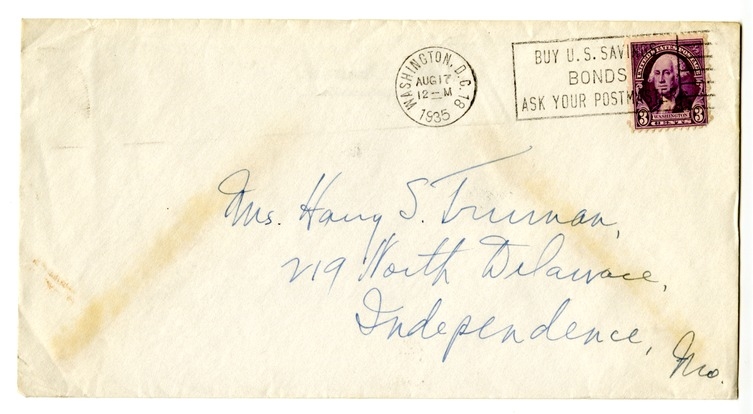 WASHINGTON, D.C. 18
AUG 17
12 – M
1935
BUY U.S. SAVINGS
BONDS
ASK YOUR POSTM
UNITED STATES POSTAGE
WASHINGTON
3 CENTS 3
Mrs. Harry S. Truman,
219 North Delaware,
Independence,
Mo.